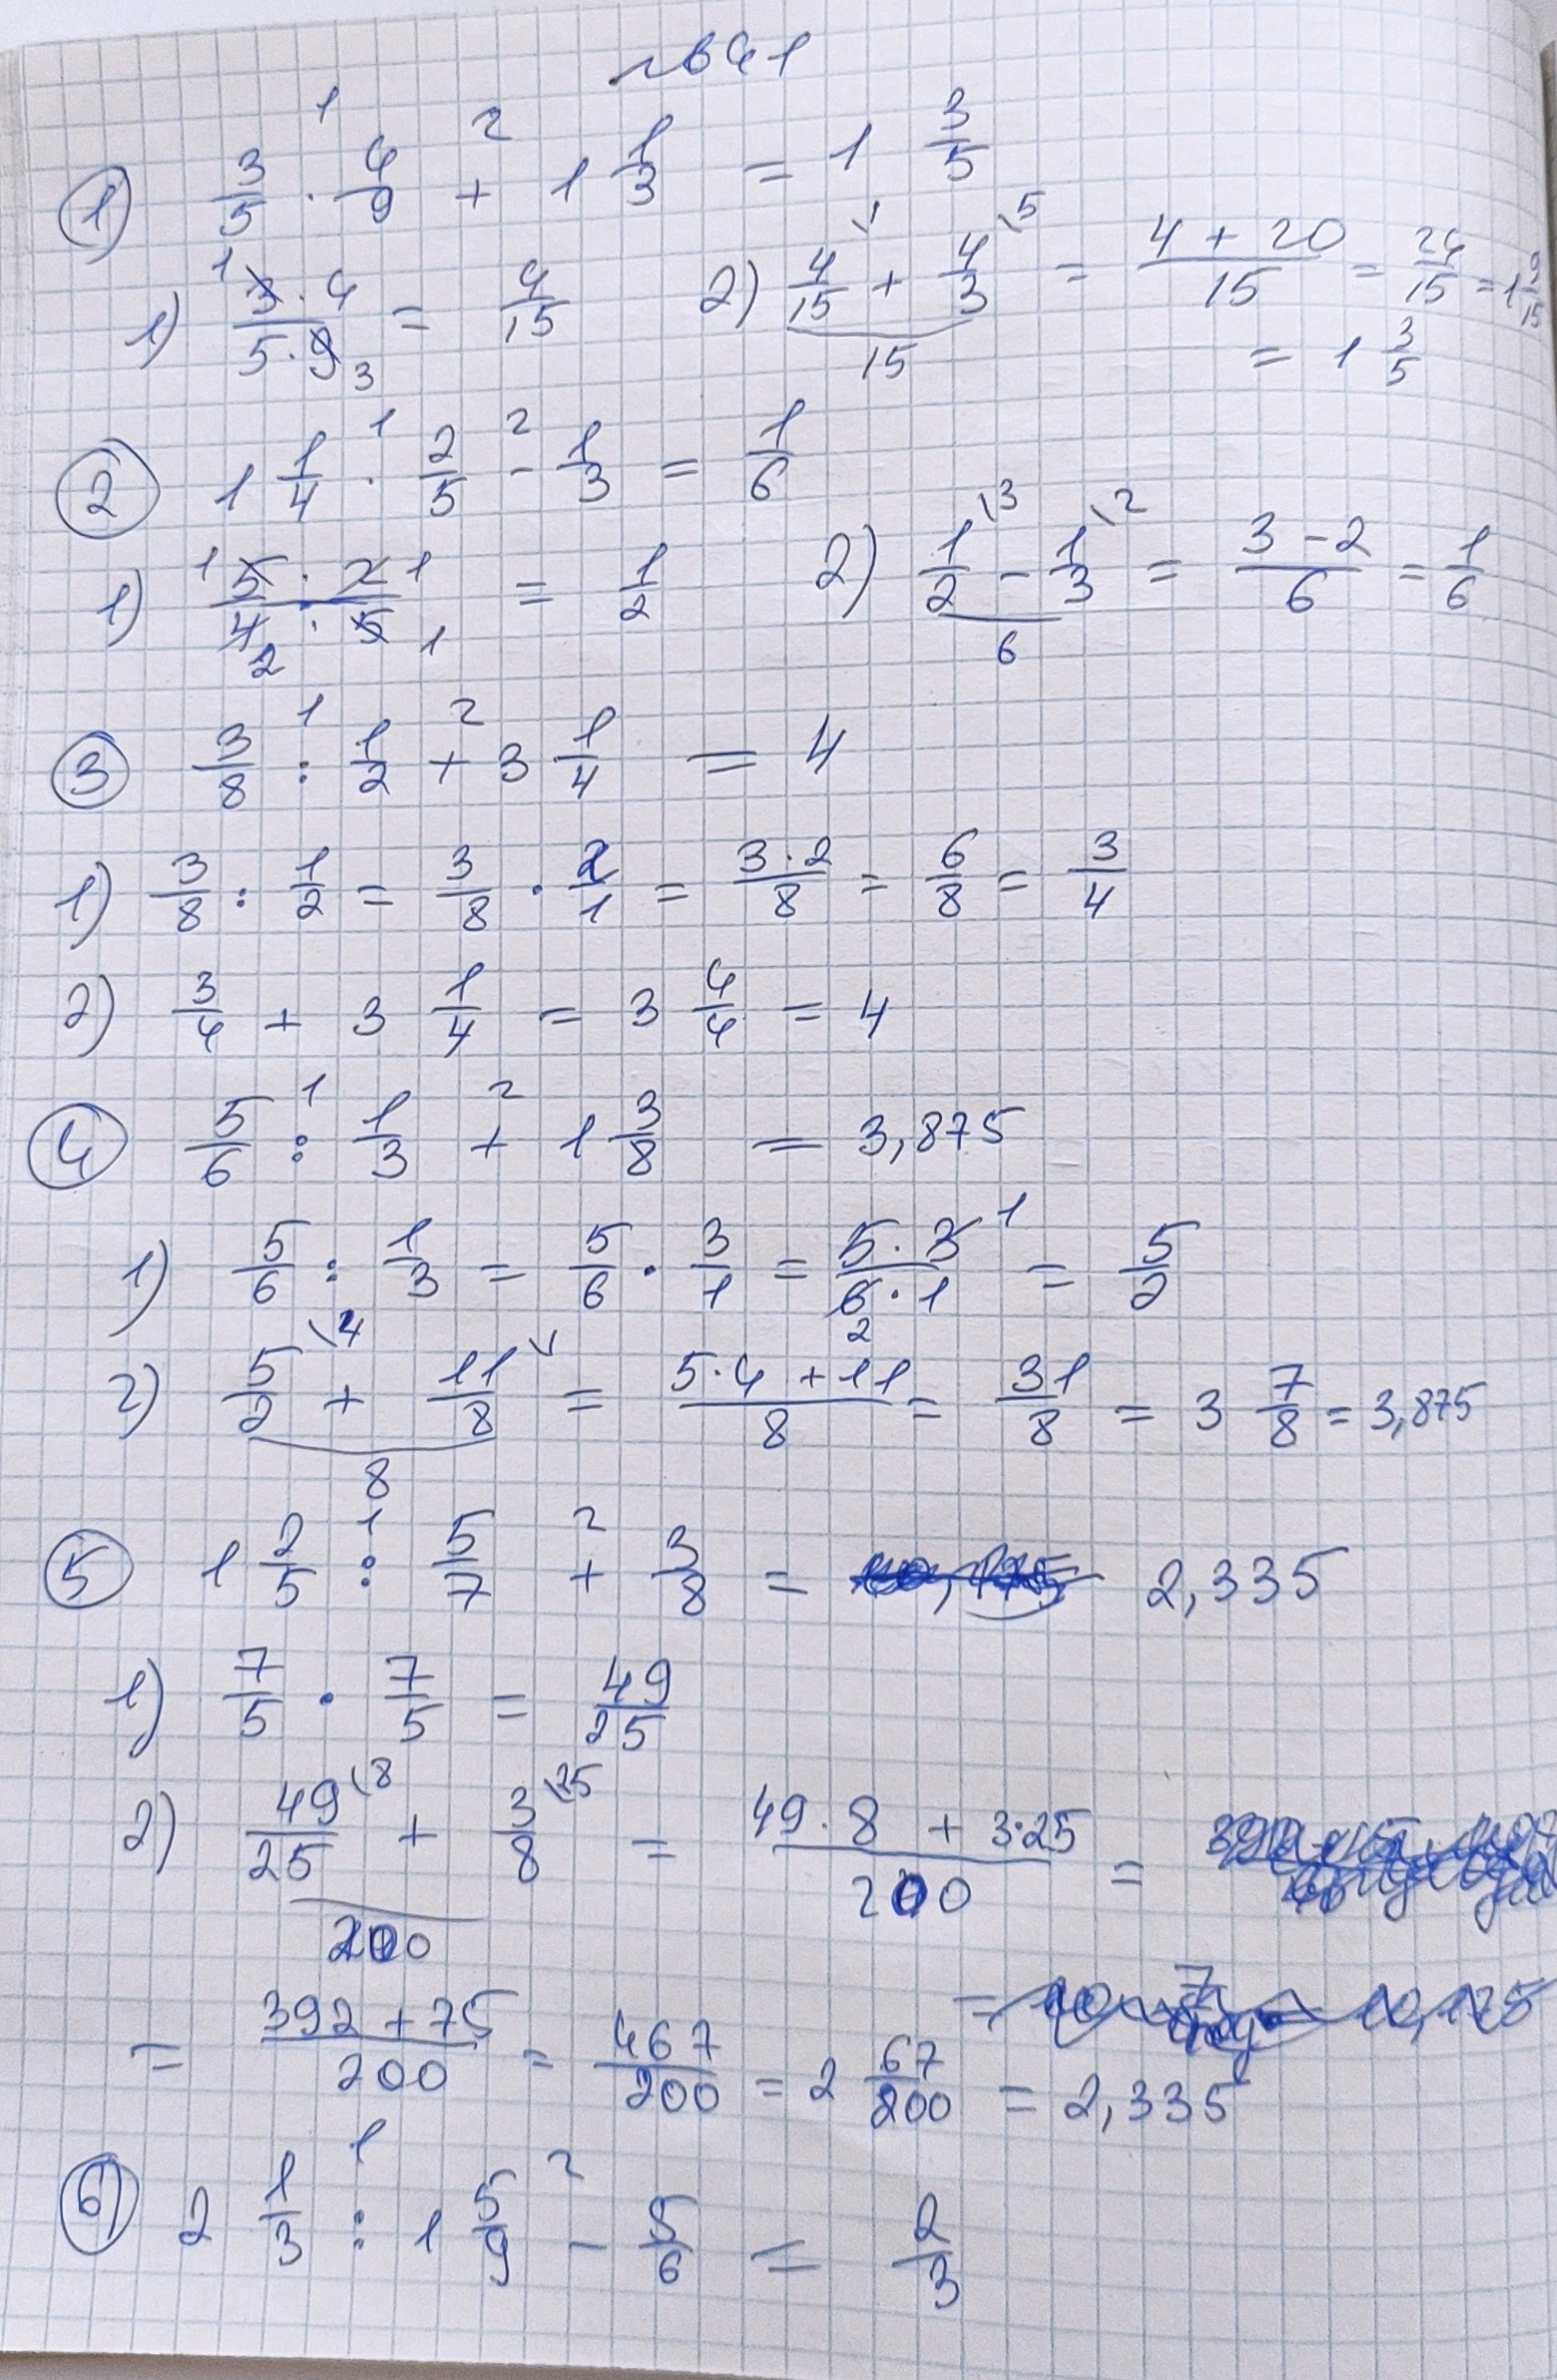 №641
① 3/5 · 4/9 + 1 1/3 = 1 3/5
1) 3·4/5·9 = 4/15 2) 4/15 + 4/3 = 4+20/15 = 24/15 = 1 9/15
15 = 1 3/5
② 1 1/4 · 2/5 - 1/3 = 1/6
1) 5·2/4·5 = 1/2 2) 1/2 - 1/3 = 3-2/6 = 1/6
6
③ 3/8 : 1/2 + 3 1/4 = 4
1) 3/8 : 1/2 = 3/8 · 2/1 = 3·2/8 = 6/8 = 3/4
2) 3/4 + 3 1/4 = 3 4/4 = 4
④ 5/6 : 1/3 + 1 3/8 = 3,875
1) 5/6 : 1/3 = 5/6 · 3/1 = 5·3/6·1 = 5/2
2) 5/2 + 11/8 = 5·4+11/8 = 31/8 = 3 7/8 = 3,875
8
⑤ 1 2/5 : 5/7 + 3/8 = 2,335
1) 7/5 · 7/5 = 49/25
2) 49/25 + 3/8 = 49·8 + 3·25/200 =
200
= 392+75/200 = 467/200 = 2 67/200 = 2,335
⑥ 2 1/3 : 1 5/9 - 5/6 = 2/3